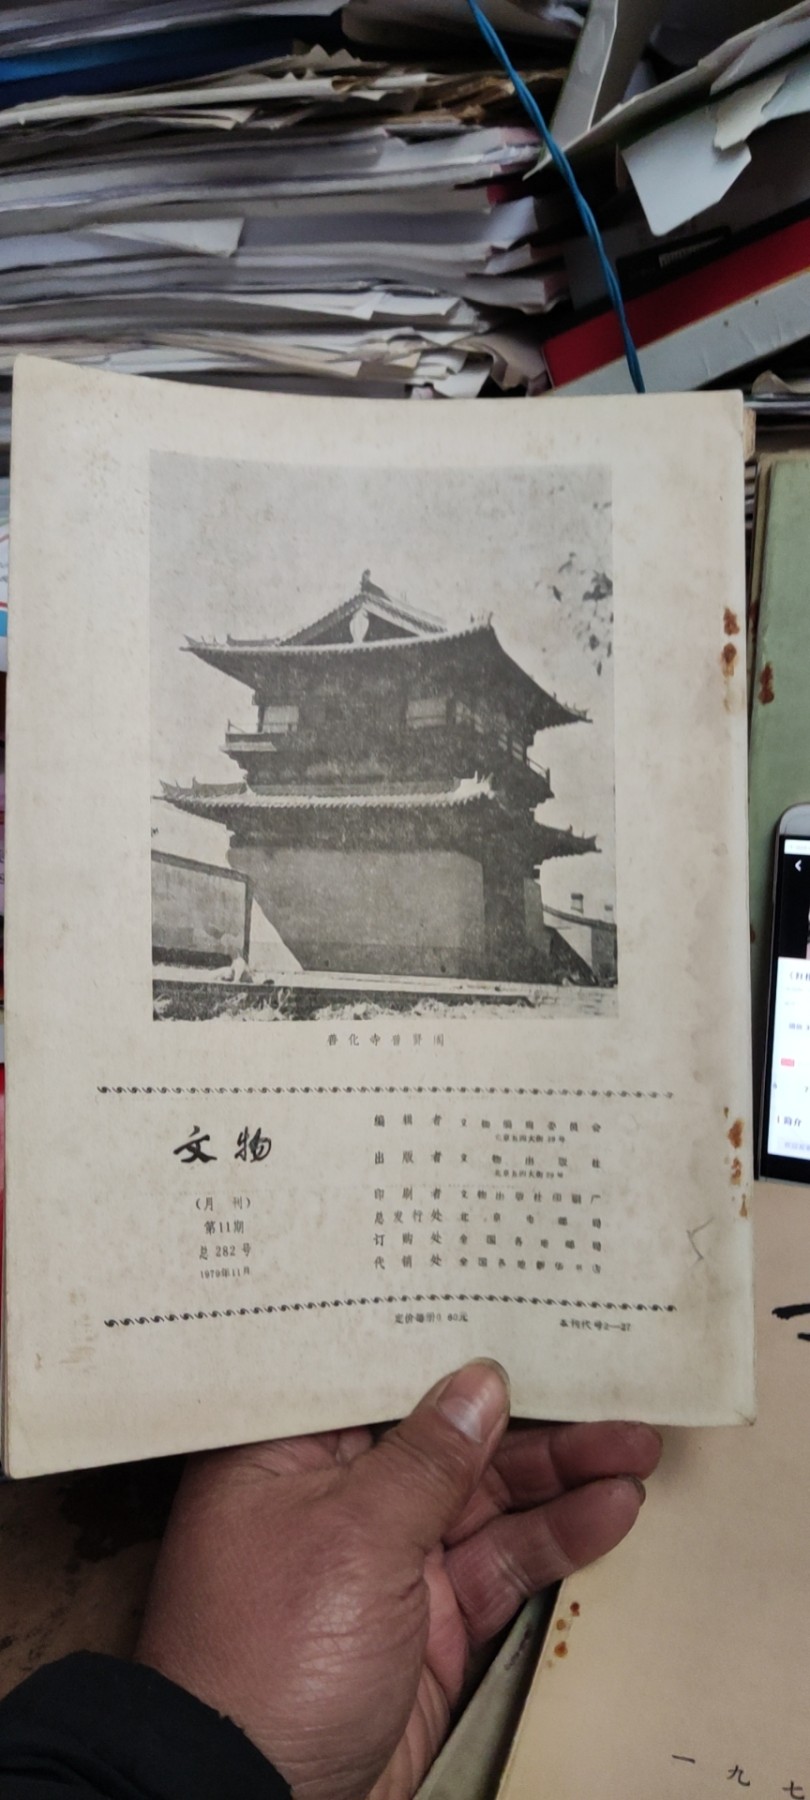 善化寺普贤阁
文物
(月 刊)
第11期
总 282 号
1979年11月
编 辑 者 文 物 编 辑 委 员 会
北京五四大街 29 号
出 版 者 文 物 出 版 社
北京五四大街 29 号
印 刷 者 文物出版社印刷厂
总发行处 北 京 市 邮 局
订 购 处 全 国 各 地 邮 局
代 销 处 全国各地新华书店
定价每册0.80元
本刊代号2—27
简介
一 九 七